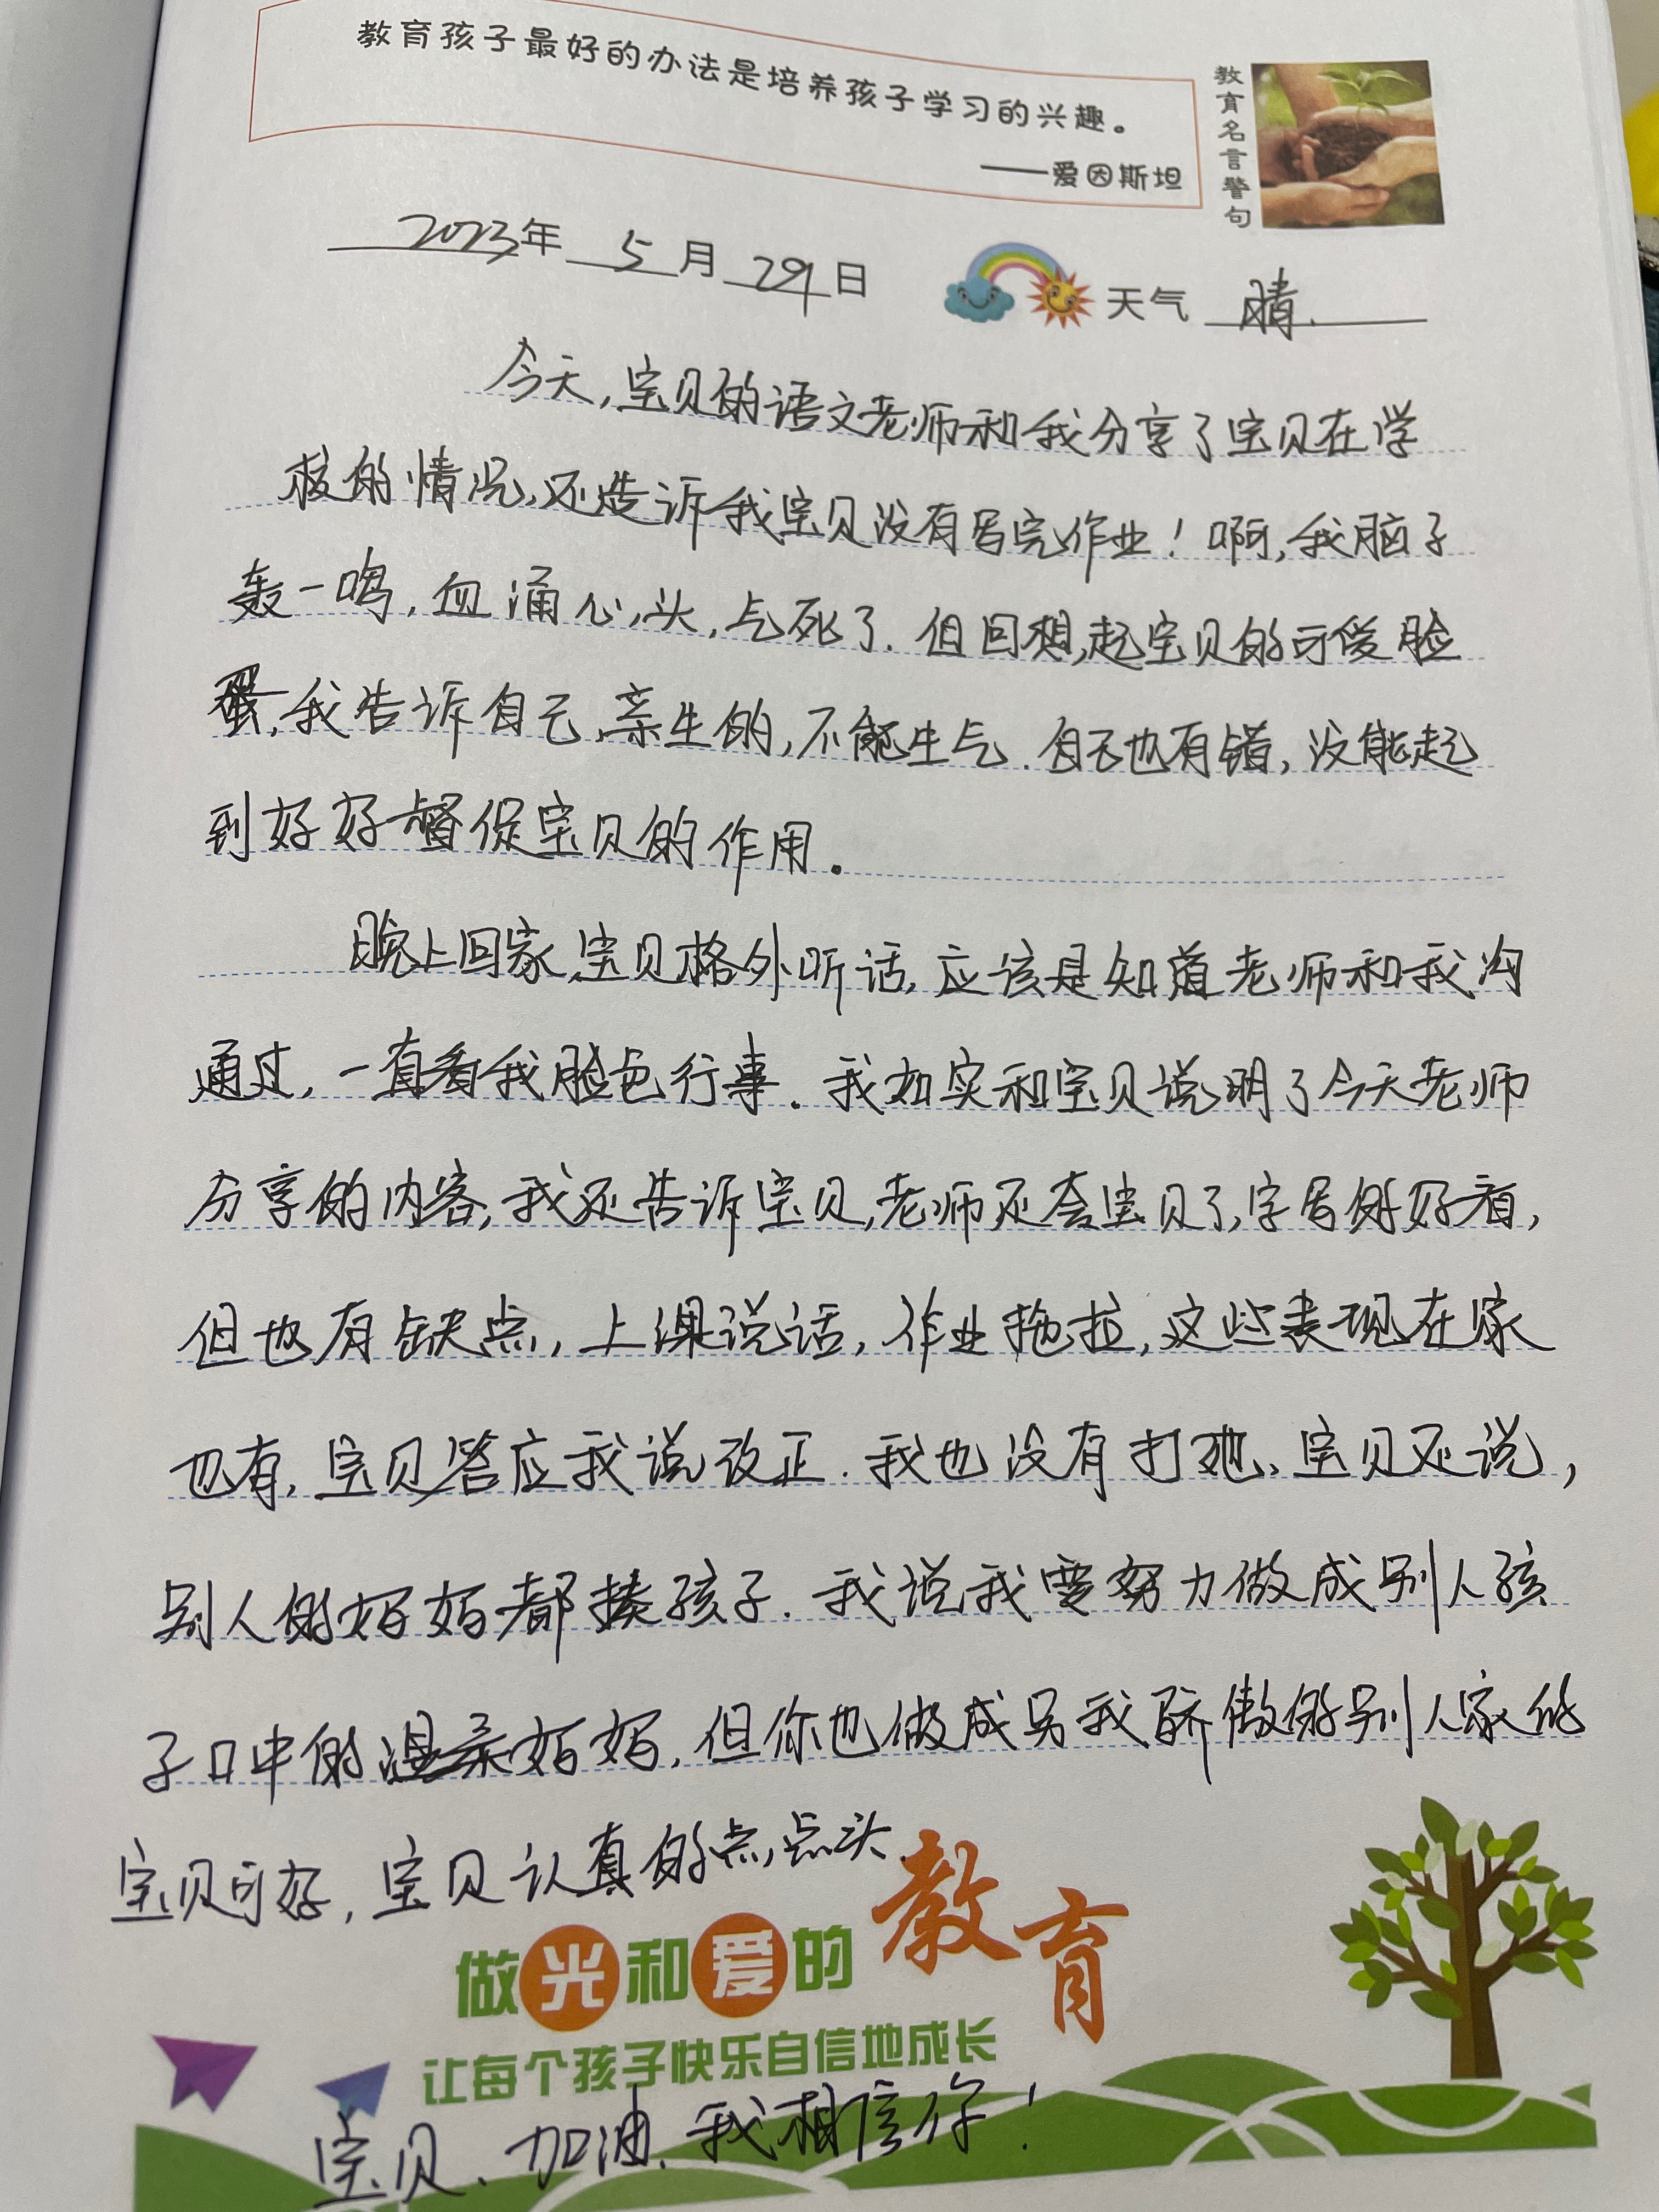 教育孩子最好的办法是培养孩子学习的兴趣。
——爱因斯坦
教育名言警句
2023年 5月 29日 天气 晴.
今天,宝贝的语文老师和我分享了宝贝在学
校的情况,还告诉我宝贝没有写完作业!啊,我脑子
轰一鸣,血涌心头,气死了.但回想起宝贝的可爱脸
蛋,我告诉自己,亲生的,不能生气.自己也有错,没能起
到好好督促宝贝的作用。
晚上回家,宝贝格外听话,应该是知道老师和我沟
通过,一直看我脸色行事.我如实和宝贝说明了今天老师
分享的内容,我还告诉宝贝,老师还夸宝贝了,字写的好看,
但也有缺点,上课说话,作业拖拉,这些表现在家
也有,宝贝答应我说改正.我也没有打她、宝贝还说,
别人的妈妈都揍孩子.我说我要努力做成别人孩
子口中的温柔妈妈,但你也做成另我骄傲的别人家的
宝贝可好,宝贝认真的点点头.
做光和爱的教育
让每个孩子快乐自信地成长
宝贝、加油、我相信你!